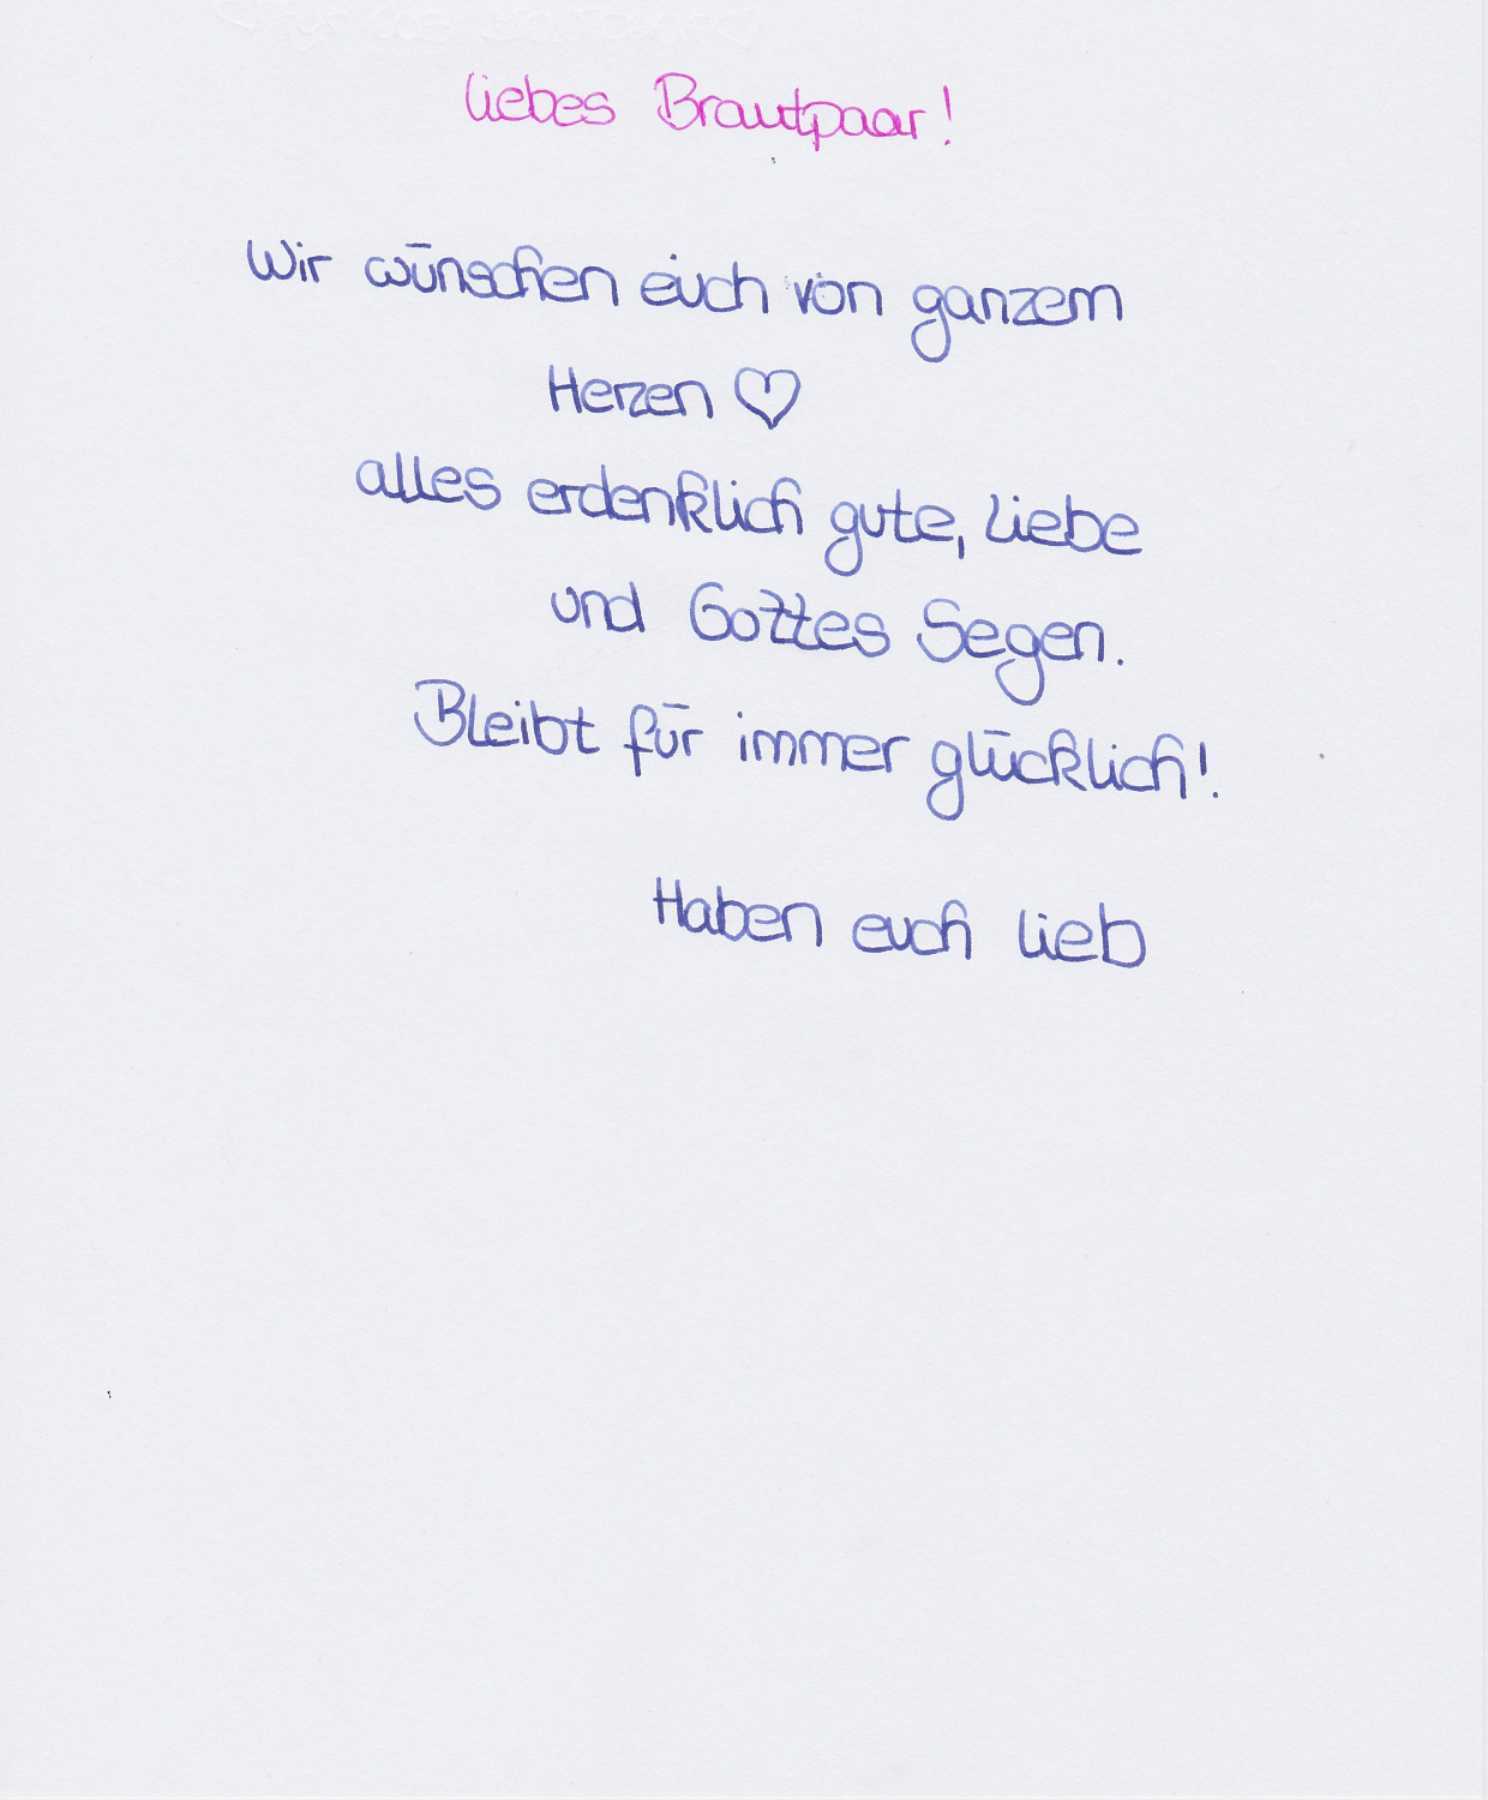 liebes Brautpaar!
Wir wünschen euch von ganzem
Herzen ♡
alles erdenklich gute, Liebe
und Gottes Segen.
Bleibt für immer glücklich!
Haben euch lieb